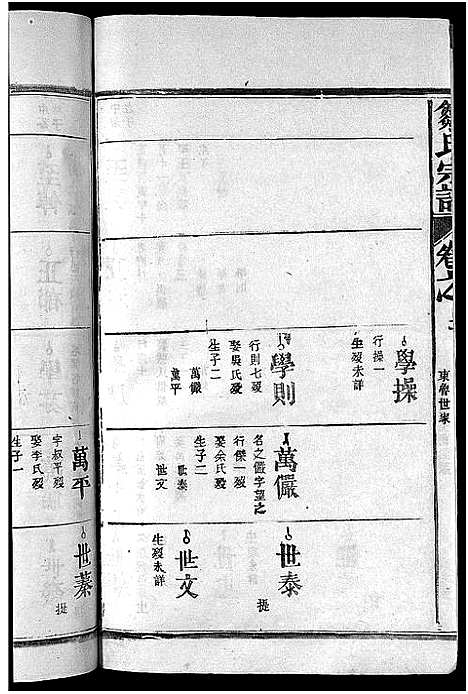 鄒氏宗譜
卷之
東魯世家
學操
行操一
生歿未詳
學則
行則七歿
娶吳氏歿
生子二
萬儼
萬平
萬儼
名之儼字望之
行傑一歿
娶余氏歿
生子二
世泰
世文
世泰
提
世文
生歿未詳
萬平
字叔平歿
娶李氏歿
生子一
世蓁
提